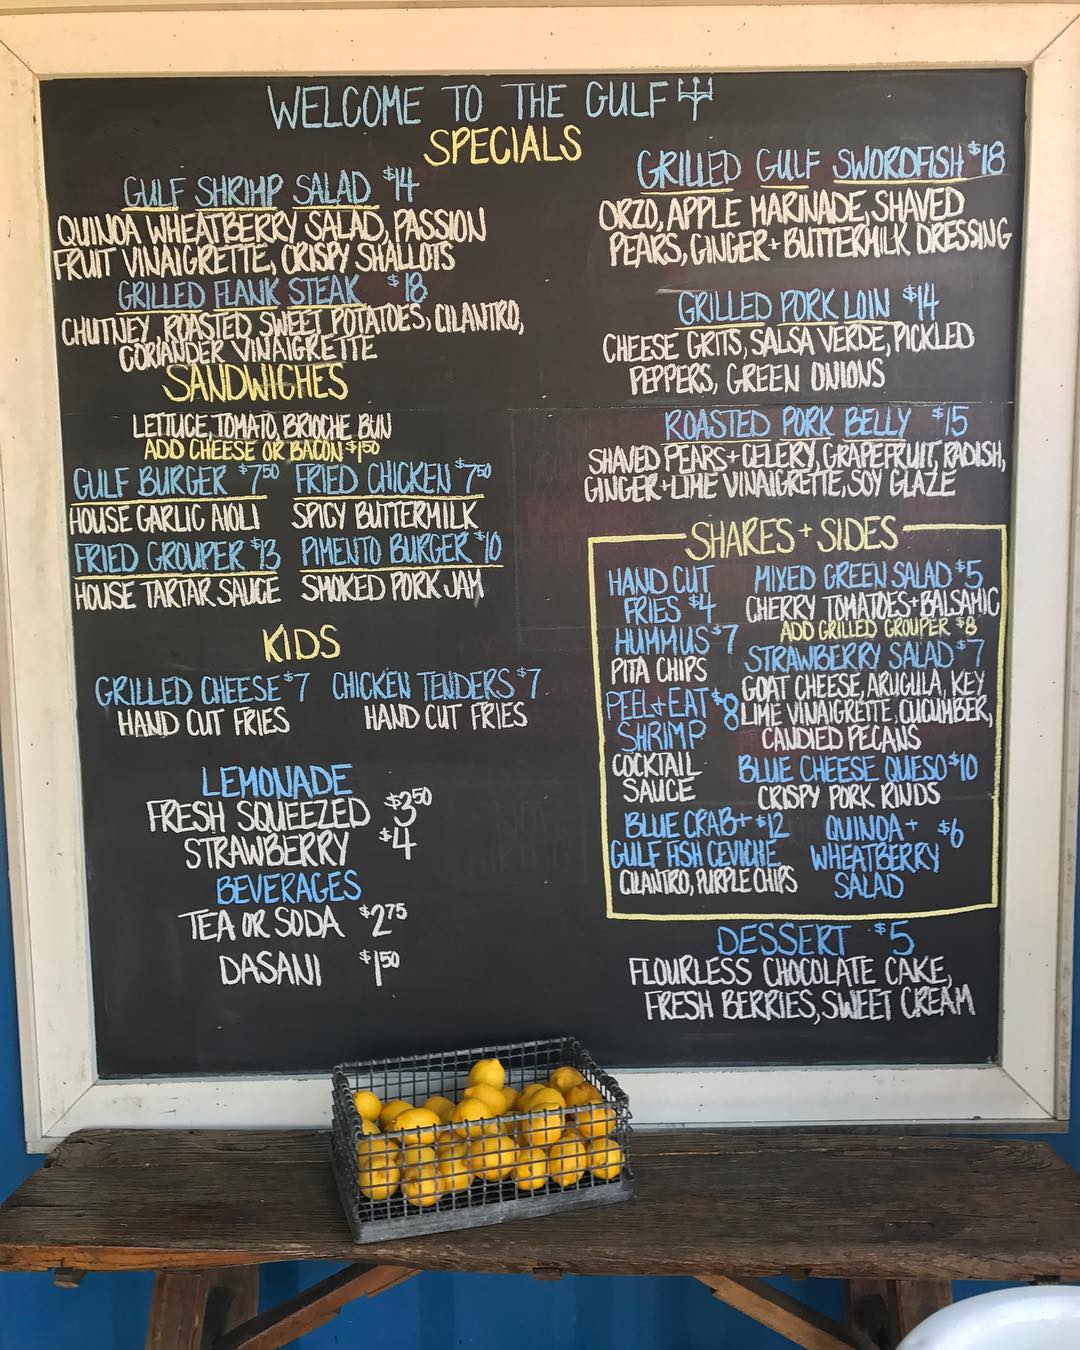 WELCOME TO THE GULF
SPECIALS
GULF SHRIMP SALAD $14
QUINOA WHEATBERRY SALAD, PASSION
FRUIT VINAIGRETTE, CRISPY SHALLOTS
GRILLED FLANK STEAK $18
CHUTNEY, ROASTED SWEET POTATOES, CILANTRO,
CORIANDER VINAIGRETTE
GRILLED GULF SWORDFISH $18
ORZO, APPLE MARINADE, SHAVED
PEARS, GINGER + BUTTERMILK DRESSING
GRILLED PORK LOIN $14
CHEESE GRITS, SALSA VERDE, PICKLED
PEPPERS, GREEN ONIONS
ROASTED PORK BELLY $15
SHAVED PEARS + CELERY, GRAPEFRUIT, RADISH,
GINGER + LIME VINAIGRETTE, SOY GLAZE
SANDWICHES
LETTUCE, TOMATO, BRIOCHE BUN
ADD CHEESE OR BACON $1.50
GULF BURGER $7.50
HOUSE GARLIC AIOLI
FRIED CHICKEN $7.50
SPICY BUTTERMILK
FRIED GROUPER $13
HOUSE TARTAR SAUCE
PIMENTO BURGER $10
SMOKED PORK JAM
KIDS
GRILLED CHEESE $7
HAND CUT FRIES
CHICKEN TENDERS $7
HAND CUT FRIES
LEMONADE
FRESH SQUEEZED $3.50
STRAWBERRY $4
BEVERAGES
TEA OR SODA $2.75
DASANI $1.50
SHARES + SIDES
HAND CUT
FRIES $4
HUMMUS $7
PITA CHIPS
PEEL + EAT $8
SHRIMP
COCKTAIL
SAUCE
BLUE CRAB + $12
GULF FISH CEVICHE
CILANTRO, PURPLE CHIPS
MIXED GREEN SALAD $5
CHERRY TOMATOES + BALSAMIC
ADD GRILLED GROUPER $8
STRAWBERRY SALAD $7
GOAT CHEESE, ARUGULA, KEY
LIME VINAIGRETTE, CUCUMBER,
CANDIED PECANS
BLUE CHEESE QUESO $10
CRISPY PORK RINDS
QUINOA + $6
WHEATBERRY
SALAD
DESSERT $5
FLOURLESS CHOCOLATE CAKE,
FRESH BERRIES, SWEET CREAM